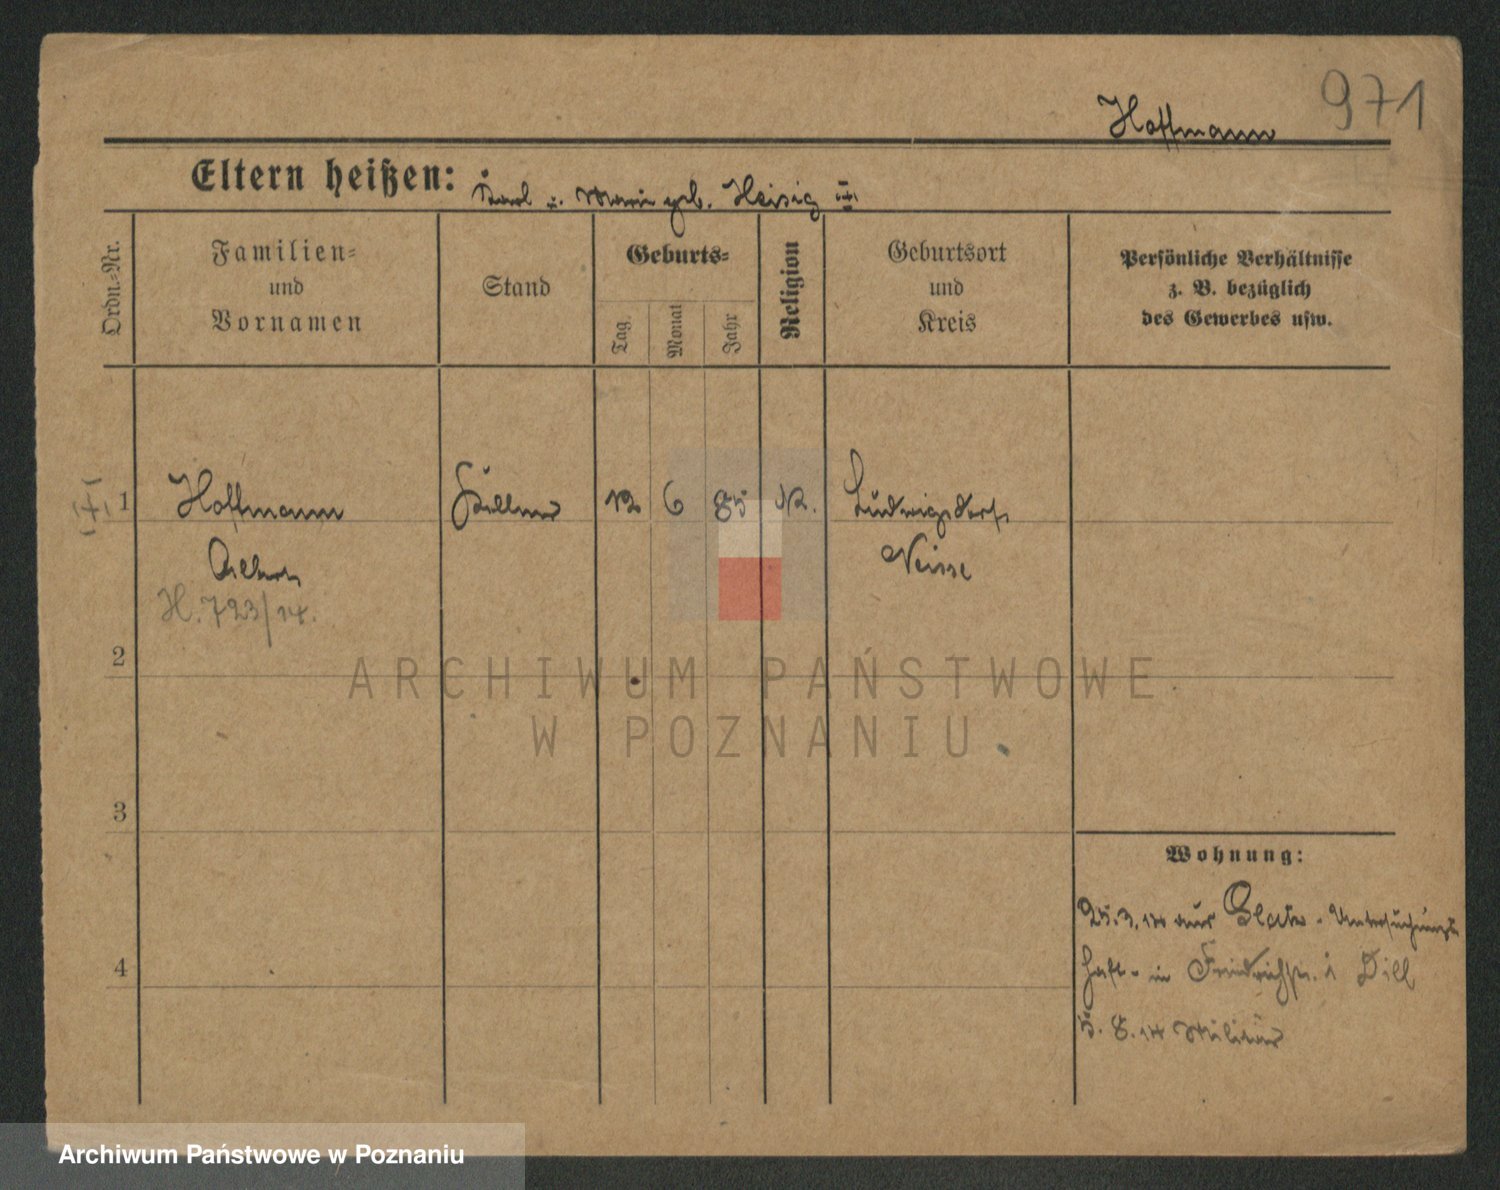 971
Hoffmann
Eltern heißen: Karl u. Marie geb. Heisig
Ordn.-Nr.
Familien-
und
Vornamen
Stand
Geburts-
Tag.
Monat
Jahr
Religion
Geburtsort
und
Kreis
Persönliche Verhältnisse
z. B. bezüglich
des Gewerbes usw.
1 Hoffmann Kellner 12 6 85 K. Ludwigsdorf
Neisse
H. 723/14.
2
ARCHIWUM PAŃSTWOWE
W POZNANIU
3
Wohnung:
25.3.14 aus Glatz - Untersuchungs
4
haft - in Friedrichstr. Dill
5. 8. 14 Militär
Archiwum Państwowe w Poznaniu